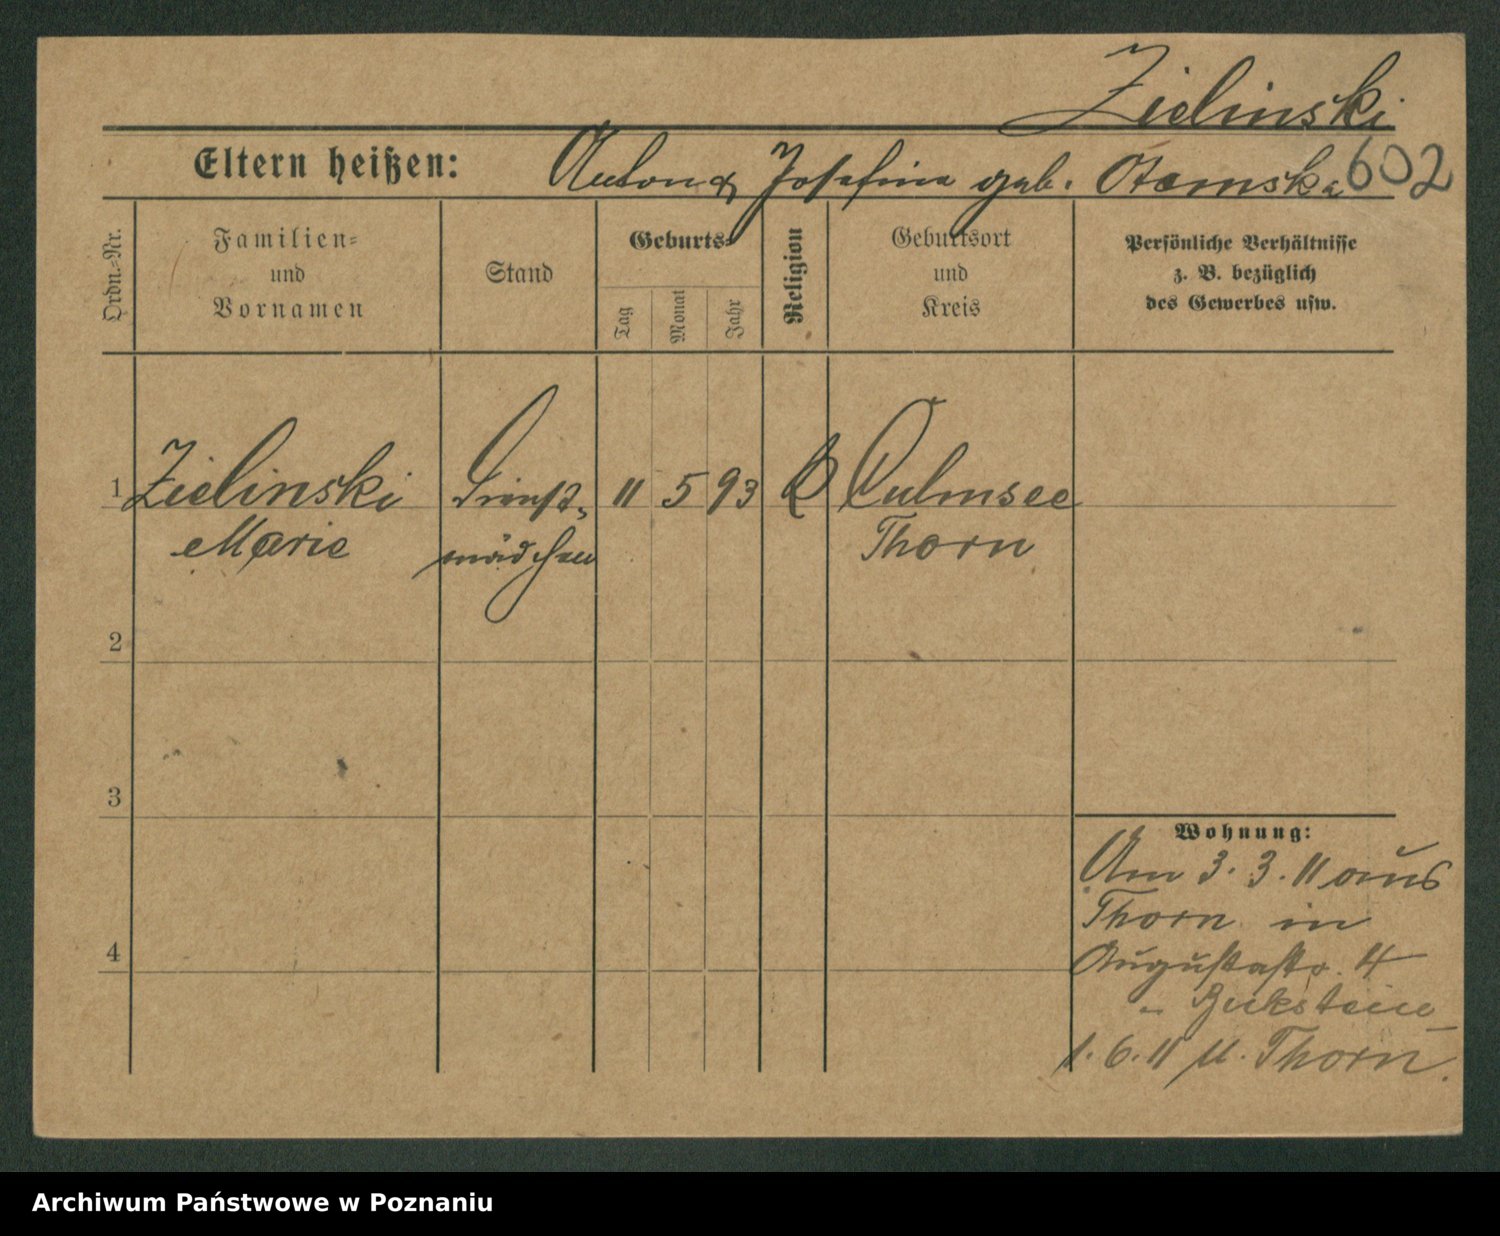 Zielinski
602
Eltern heißen: Anton & Josefina geb. Otomska
Ordn.=Nr.
Familien=
und
Vornamen
Stand
Geburts=
Tag
Monat
Jahr
Religion
Geburtsort
und
Kreis
Persönliche Verhältnisse
z. B. bezüglich
des Gewerbes usw.
1 Zielinski Dienst- 11 5 93 Culmsee
Marie mädchen Thorn
2
3
4
Wohnung:
Am 3. 3. 11 aus
Thorn in
Augustastr. 4
1. 6. 11 n. Thorn.
Archiwum Państwowe w Poznaniu